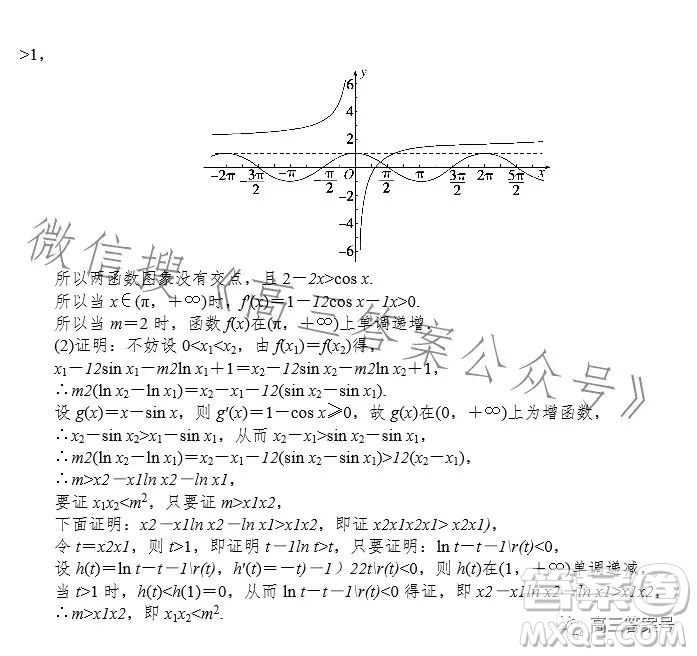 >1，
y
6
4
2
−2π −3π/2 −π −π/2 O π/2 π 3π/2 2π 5π/2 x
−2
−4
−6
所以两函数图象没有交点，且 2－2x>cos x.
所以当 x∈(π，＋∞)时，f′(x)＝1－12cos x－1x>0.
所以当 m＝2 时，函数 f(x)在(π，＋∞)上单调递增.
(2)证明：不妨设 0<x₁<x₂，由 f(x₁)＝f(x₂)得，
x₁－12sin x₁－m2ln x₁＋1＝x₂－12sin x₂－m2ln x₂＋1，
∴m2(ln x₂－ln x₁)＝x₂－x₁－12(sin x₂－sin x₁).
设 g(x)＝x－sin x，则 g′(x)＝1－cos x≥0，故 g(x)在(0，＋∞)上为增函数，
∴x₂－sin x₂>x₁－sin x₁，从而 x₂－x₁>sin x₂－sin x₁，
∴m2(ln x₂－ln x₁)＝x₂－x₁－12(sin x₂－sin x₁)>12(x₂－x₁)，
∴m>x2－x1ln x2－ln x1，
要证 x₁x₂<m²，只要证 m>x1x2，
下面证明：x2－x1ln x2－ln x1>x1x2，即证 x2x1x2x1> x2x1)，
令 t＝x2x1，则 t>1，即证明 t－1ln t>t，只要证明：ln t－t－1\r(t)<0，
设 h(t)＝ln t－t－1\r(t)，h′(t)＝－t)－1）22t\r(t)<0，则 h(t)在(1，＋∞)单调递减，
当 t>1 时，h(t)<h(1)＝0，从而 ln t－t－1\r(t)<0 得证，即 x2－x1ln x2－ln x1>x1x2，
∴m>x1x2，即 x₁x₂<m².
微信搜《高三答案公众号》
高三答案号
答案圈
MXQE.COM